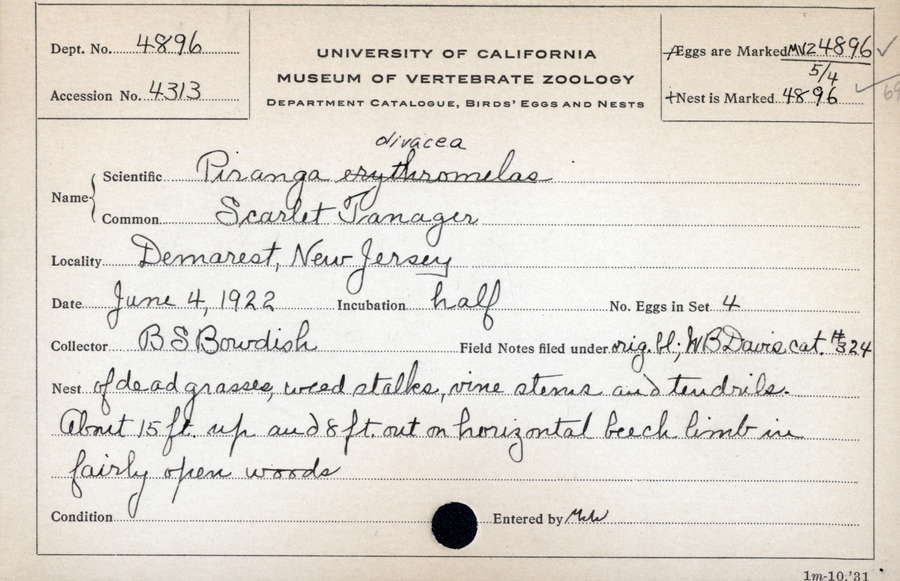 Dept. No. 4896
Accession No. 4313
UNIVERSITY OF CALIFORNIA
MUSEUM OF VERTEBRATE ZOOLOGY
DEPARTMENT CATALOGUE, BIRDS' EGGS AND NESTS
Eggs are Marked MVZ 4896
5/4
Nest is Marked 4896
olivacea
Name
Scientific Piranga erythromelas
Common Scarlet Tanager
Locality Demarest, New Jersey
Date June 4, 1922 Incubation half No. Eggs in Set 4
Collector B S Bowdish Field Notes filed under orig. bl; W B Davis cat. # 324
Nest of dead grasses, weed stalks, vine stems and tendrils.
About 15 ft. up and 8 ft. out on horizontal beech limb in
fairly open woods
Condition Entered by
1m-10,'31